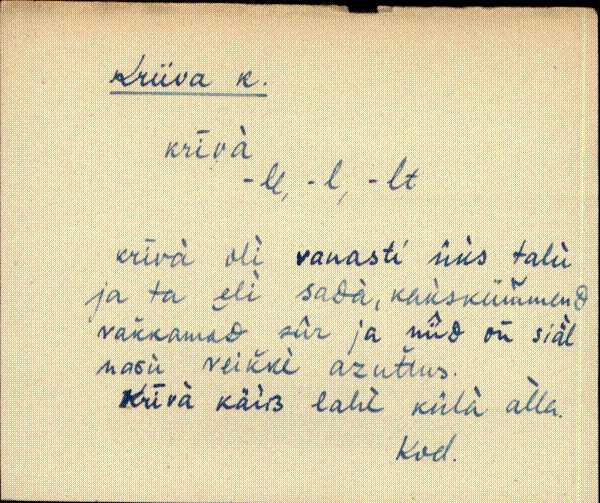 Kriiva k.
krīvà
-lle, -l, -lt
krīvà oli vanasti üks talù
ja ta èli sadà, kakskümmend
vakkamaᴅ sūr ja nǖᴅ on siäl
nasù veikkè azuttus.
Krīvà käiʙ lahè külà alla.
Kod.